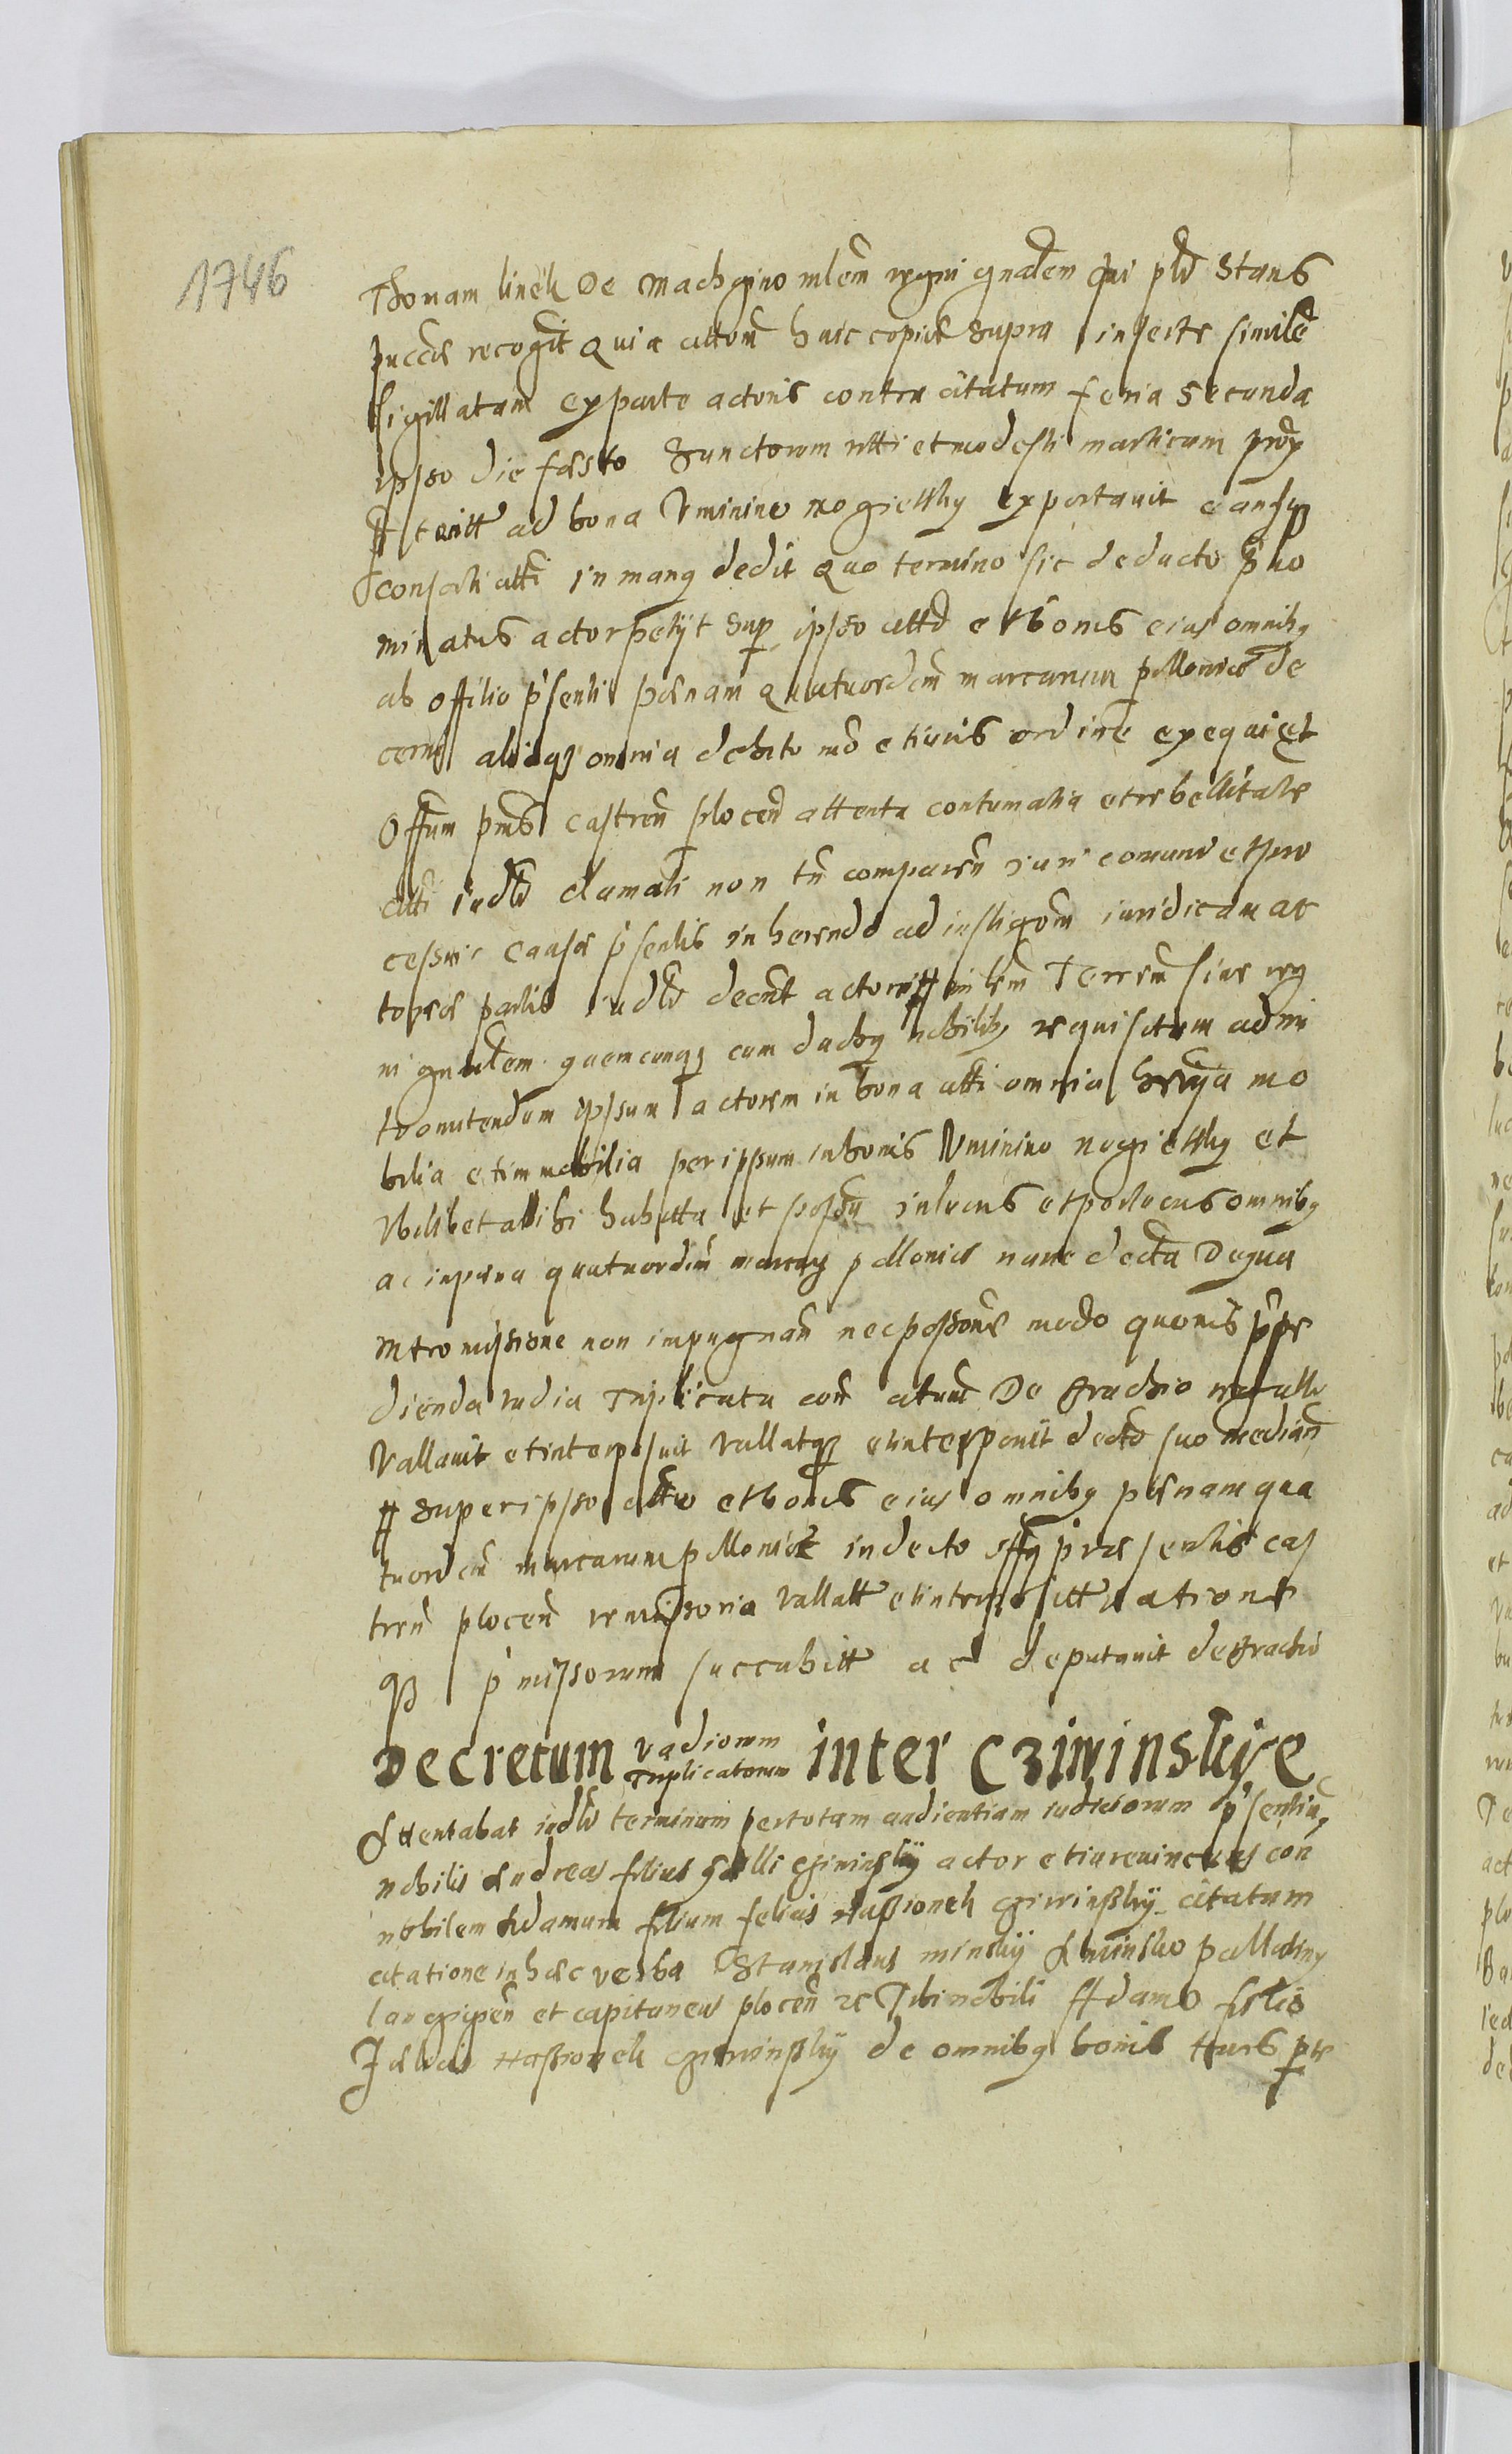 1746
Thomam linek de Machczino mlem regni gnalem qui pld stans
puccde recogit quia cittom huic copiae supra inserte simile
sigillatam ex parte actoris contra citatum feria secunda
ipso die festo Sanctorum vitti et modesti martirum prox
ptaritt ad bona Uminino nogietthy exportavit eandqz
consorti citti in mang dedit quo termino sic deducto pno
minatus actor petijt sup ipso cittd et bonis eius omnibq
ab offitio psenti paenam quatuordcim marcarum pollonice de
cerni aliaqz omnia debito mo et iuris ordine exequi et
Offum pns castren plocen attenta contumatia et rebellitate
citti iudld clamati non tn comparen iuri comuni et pro
cessui causae psentis inherendo ad instigom iuridicam ac
toreae partis iudld decrit actori mlem Terrem sive reg
ni gnalem quemcunqz cum duobq nobilibq requisitum ad in
tromittendum ipsum actorem in bona citti omnia hereija mo
bilia et immobilia per ipsum in bonis Uminino nogietthy et
ubilibet alibi habitta et possa in lucris et poslucris omnibq
ac in paena quatuordcim marcarq pollonice nunc decta de qua
intromissione non impugnan nec possone modo quovis ppe
dienda vadia Triplicata con citum De Gradzio
vallavit et interposuit vallatqz et interponit decto suo median
super ipso citto et bonis eius omnibq paenam qua
tuordcim marcarum pollonice in decto offy praesentis cas
tren plocen remissoria vallatt et interpositt ratione
qz pmissorum succubitt ac deputavit de Gradzio
Decretum vadiorum Triplicatorum inter Cziwinskije
Attentabat iudld terminum per totam audientiam iudiciorum psentiu
nobilis Andreas filius Galli Cziwinskij actor et iurevincens con
nobilem Adamum filium felicis Stassionek Cziwinskij citatum
citatione in haec verba Stanislaus minskij de minsko pallatinq
lanczicien et capitaneus plocen zc Tibi nobili Adamo filio
Felicis Stassionek Cziwinskij de omnibq bonis tuis pr